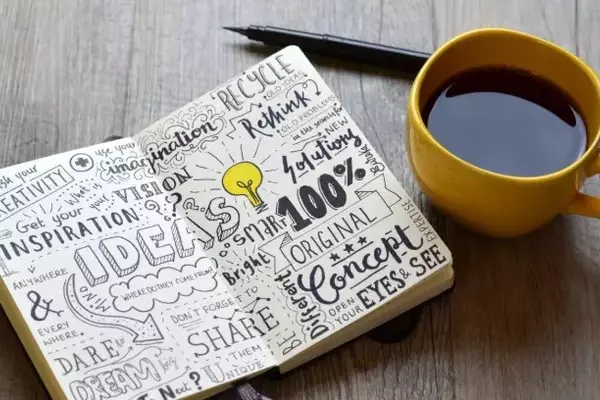 your
CREATIVITY
use your
imagination
What is
VISION
Get your
INSPIRATION?
IDEAS
WHERE DO THEY COME FROM?
ANYWHERE
&
EVERY
WHERE.
DON'T FORGET TO
SHARE
THEM
DARE to
DREAM big
Not?
UNIQUE
RECYCLE
OLD IDEAS
Rethink
OLD PROBLEMS
in the search for
NEW
Solutions
SMART
Bright
100%
ORIGINAL
Concept
Different
OPEN
YOUR
EYES & SEE
BE
EXPERTISE